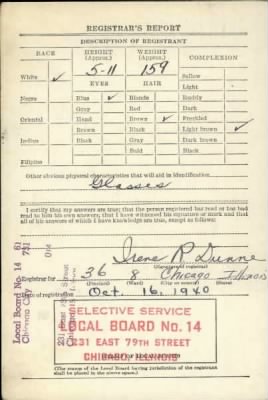 REGISTRAR'S REPORT
DESCRIPTION OF REGISTRANT
RACE HEIGHT (Approx.) WEIGHT (Approx.) COMPLEXION
White ✓ 5-11 159 Sallow
EYES HAIR Light
Negro Blue ✓ Blonde Ruddy
Gray Red Dark
Oriental Hazel Brown ✓ Freckled
Brown Black Light brown ✓
Indian Black Gray Dark brown
Bald Black
Filipino
Other obvious physical characteristics that will aid in identification
Glasses
I certify that my answers are true; that the person registered has read or has had read to him his own answers; that I have witnessed his signature or mark and that all of his answers of which I have knowledge are true, except as follows:
Irene R Dunne
(Signature of registrar)
Registrar for 36 8 Chicago Illinois
(Precinct) (Ward) (City or county) (State)
Date of registration Oct. 16, 1940
Local Board No. 14 61
731
014
231 East 79th Street
SELECTIVE SERVICE
LOCAL BOARD No. 14
231 EAST 79TH STREET
CHICAGO, ILLINOIS
(The stamp of the Local Board having jurisdiction of the registrant shall be placed in the above space.)